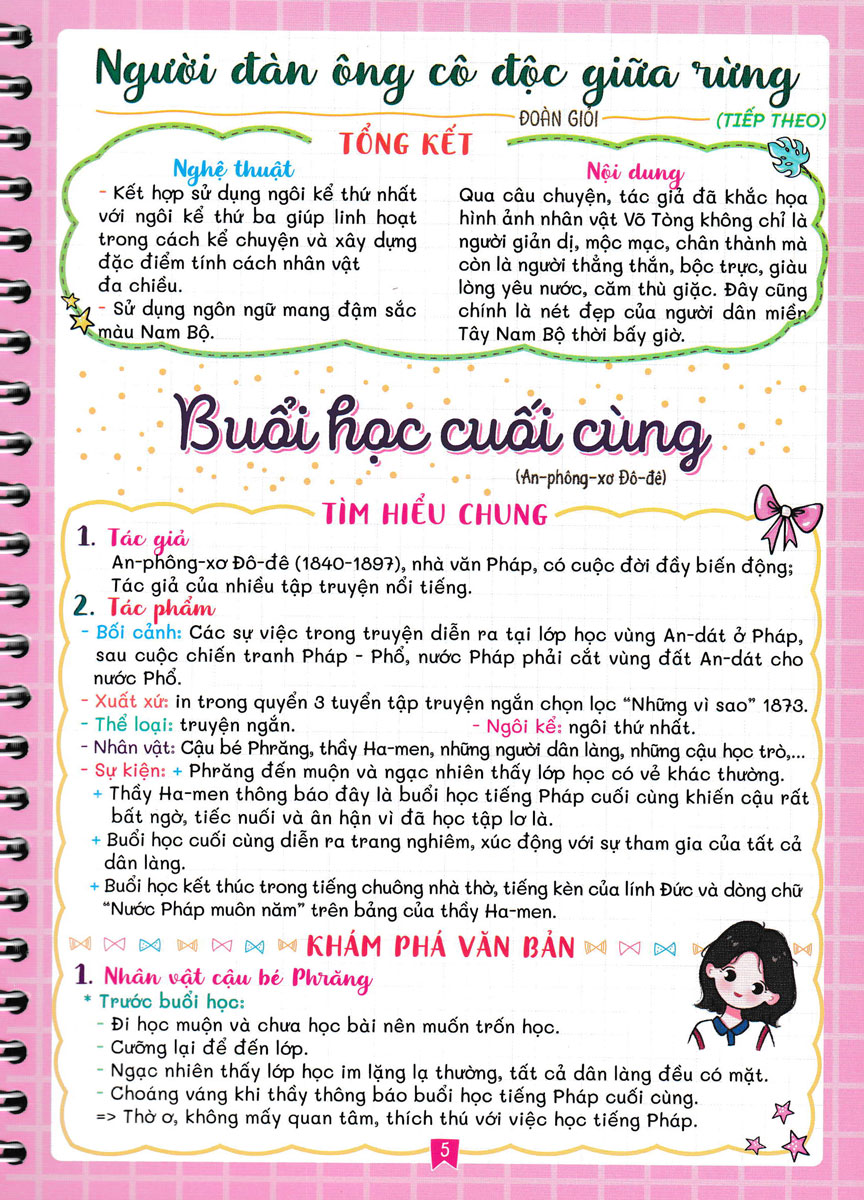 Người đàn ông cô độc giữa rừng
ĐOÀN GIỎI
(TIẾP THEO)
TỔNG KẾT
Nghệ thuật
- Kết hợp sử dụng ngôi kể thứ nhất
với ngôi kể thứ ba giúp linh hoạt
trong cách kể chuyện và xây dựng
đặc điểm tính cách nhân vật
đa chiều.
- Sử dụng ngôn ngữ mang đậm sắc
màu Nam Bộ.
Nội dung
Qua câu chuyện, tác giả đã khắc họa
hình ảnh nhân vật Võ Tòng không chỉ là
người giản dị, mộc mạc, chân thành mà
còn là người thẳng thắn, bộc trực, giàu
lòng yêu nước, căm thù giặc. Đây cũng
chính là nét đẹp của người dân miền
Tây Nam Bộ thời bấy giờ.
Buổi học cuối cùng
(An-phông-xơ Đô-đê)
TÌM HIỂU CHUNG
1. Tác giả
An-phông-xơ Đô-đê (1840-1897), nhà văn Pháp, có cuộc đời đầy biến động;
Tác giả của nhiều tập truyện nổi tiếng.
2. Tác phẩm
- Bối cảnh: Các sự việc trong truyện diễn ra tại lớp học vùng An-dát ở Pháp,
sau cuộc chiến tranh Pháp - Phổ, nước Pháp phải cắt vùng đất An-dát cho
nước Phổ.
- Xuất xứ: in trong quyển 3 tuyển tập truyện ngắn chọn lọc "Những vì sao" 1873.
- Thể loại: truyện ngắn. - Ngôi kể: ngôi thứ nhất.
- Nhân vật: Cậu bé Phrăng, thầy Ha-men, những người dân làng, những cậu học trò,...
- Sự kiện: + Phrăng đến muộn và ngạc nhiên thấy lớp học có vẻ khác thường.
+ Thầy Ha-men thông báo đây là buổi học tiếng Pháp cuối cùng khiến cậu rất
bất ngờ, tiếc nuối và ân hận vì đã học tập lơ là.
+ Buổi học cuối cùng diễn ra trang nghiêm, xúc động với sự tham gia của tất cả
dân làng.
+ Buổi học kết thúc trong tiếng chuông nhà thờ, tiếng kèn của lính Đức và dòng chữ
"Nước Pháp muôn năm" trên bảng của thầy Ha-men.
KHÁM PHÁ VĂN BẢN
1. Nhân vật cậu bé Phrăng
* Trước buổi học:
- Đi học muộn và chưa học bài nên muốn trốn học.
- Cưỡng lại để đến lớp.
- Ngạc nhiên thấy lớp học im lặng lạ thường, tất cả dân làng đều có mặt.
- Choáng váng khi thầy thông báo buổi học tiếng Pháp cuối cùng.
=> Thờ ơ, không mấy quan tâm, thích thú với việc học tiếng Pháp.
5